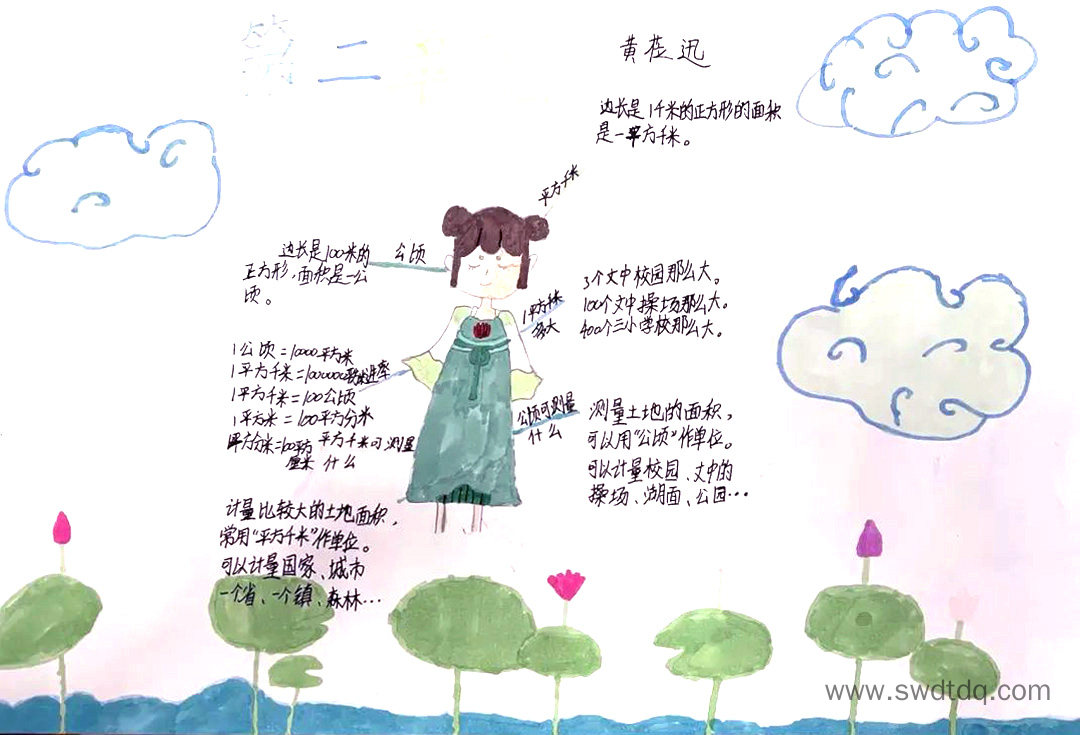 第二
黄莊迅
边长是1千米的正方形的面积
是一平方千米。
平方千米
边长是100米的
正方形,面积是一公
顷。
公顷
1平方千米
多大
3个文中校园那么大。
100个文中操场那么大。
400个三小学校那么大。
1公顷=10000平方米
1平方千米=1000000平方米
进率
1平方千米=100公顷
1平方米=100平方分米
平方分米=100平方
厘米
平方千米可测量
什么
公顷可测量
什么
测量土地的面积,
可以用“公顷”作单位。
可以计量校园、文中的
操场、湖面、公园…
计量比较大的土地面积,
常用“平方千米”作单位。
可以计量国家、城市
一个省、一个镇、森林…
www.swdtdq.com